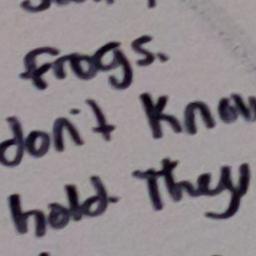 frogs.
don't know
hold. They